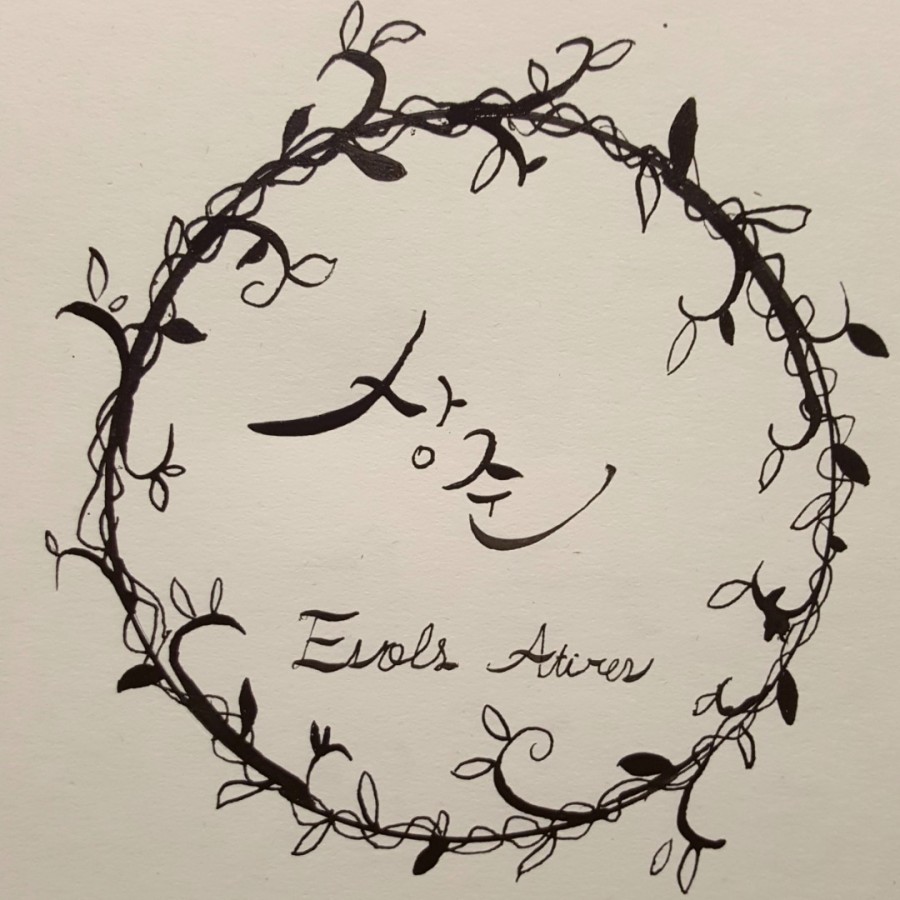 상준
Evols Atirev